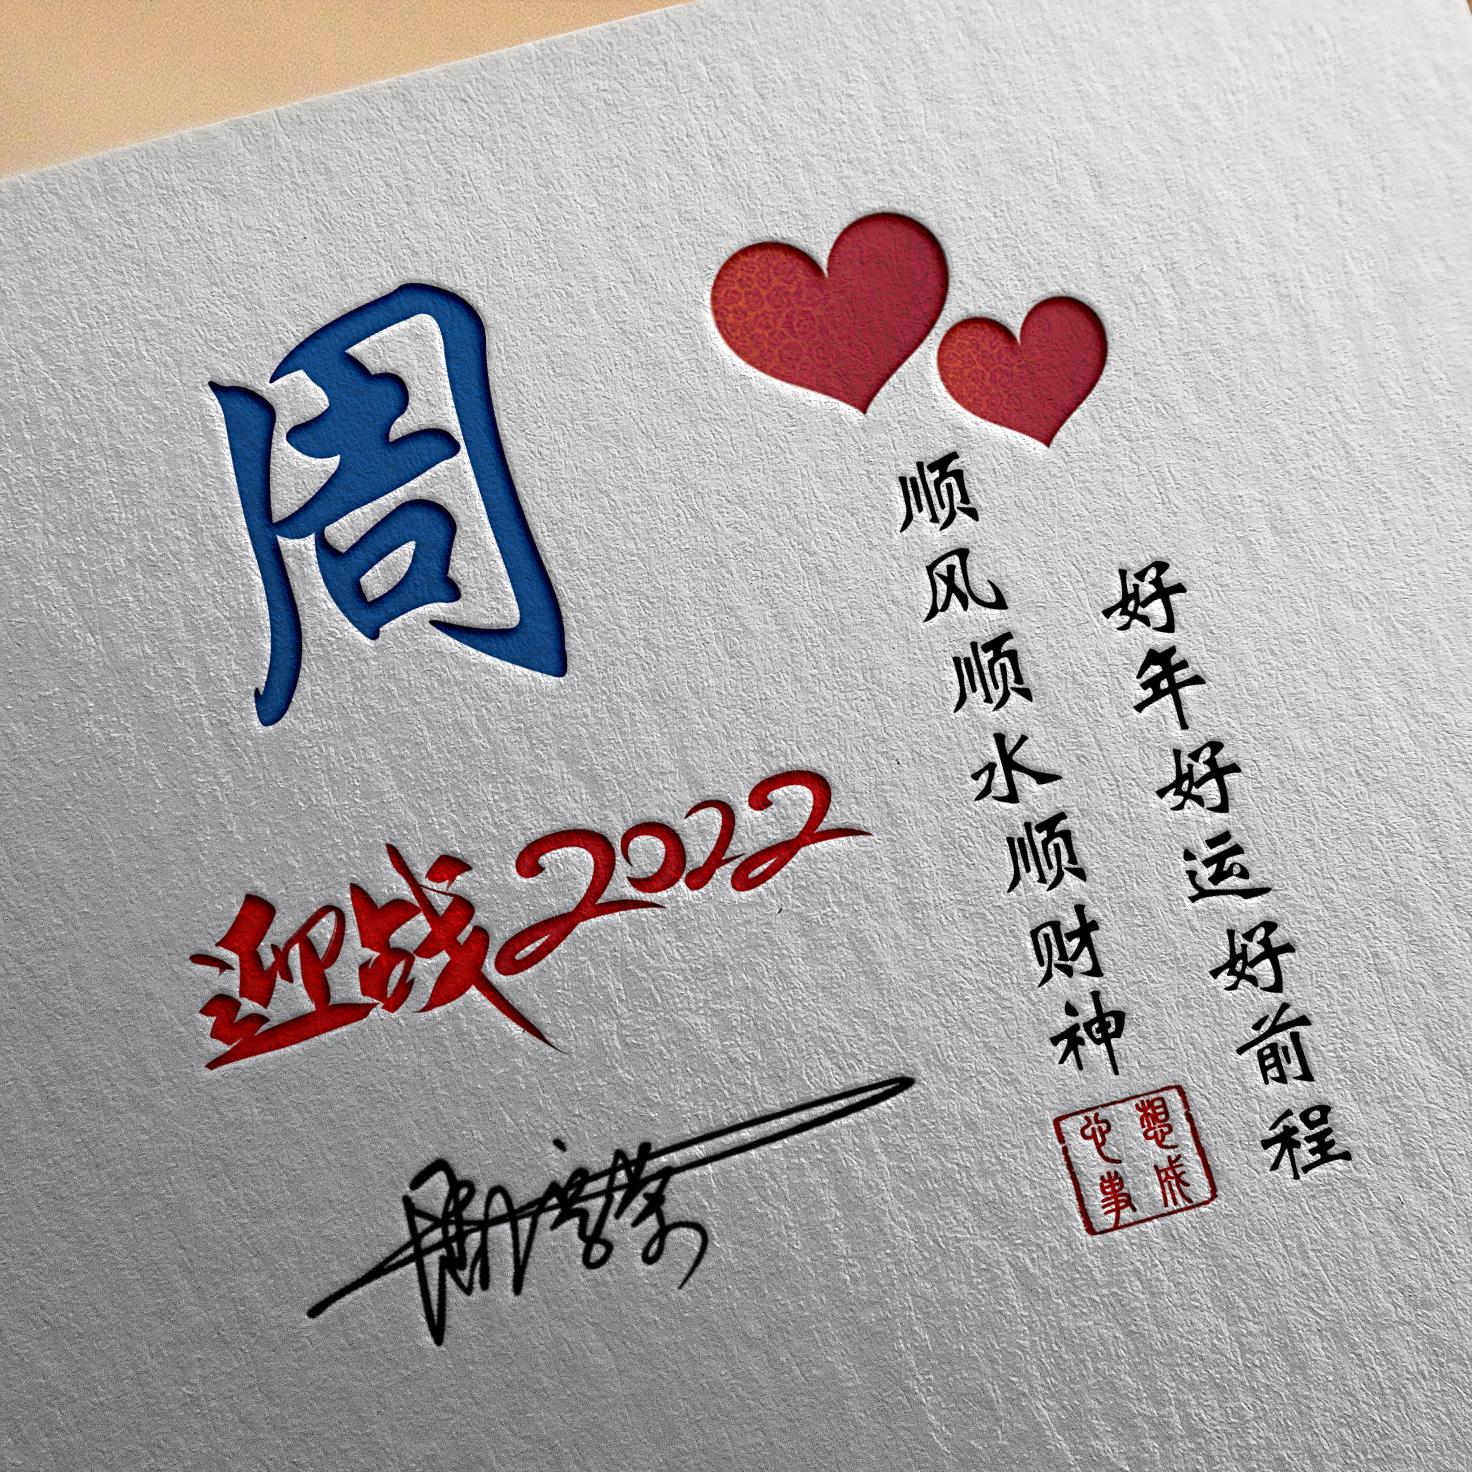 周
迎战2022
好年好运好前程
顺风顺水顺财神
想成
心事